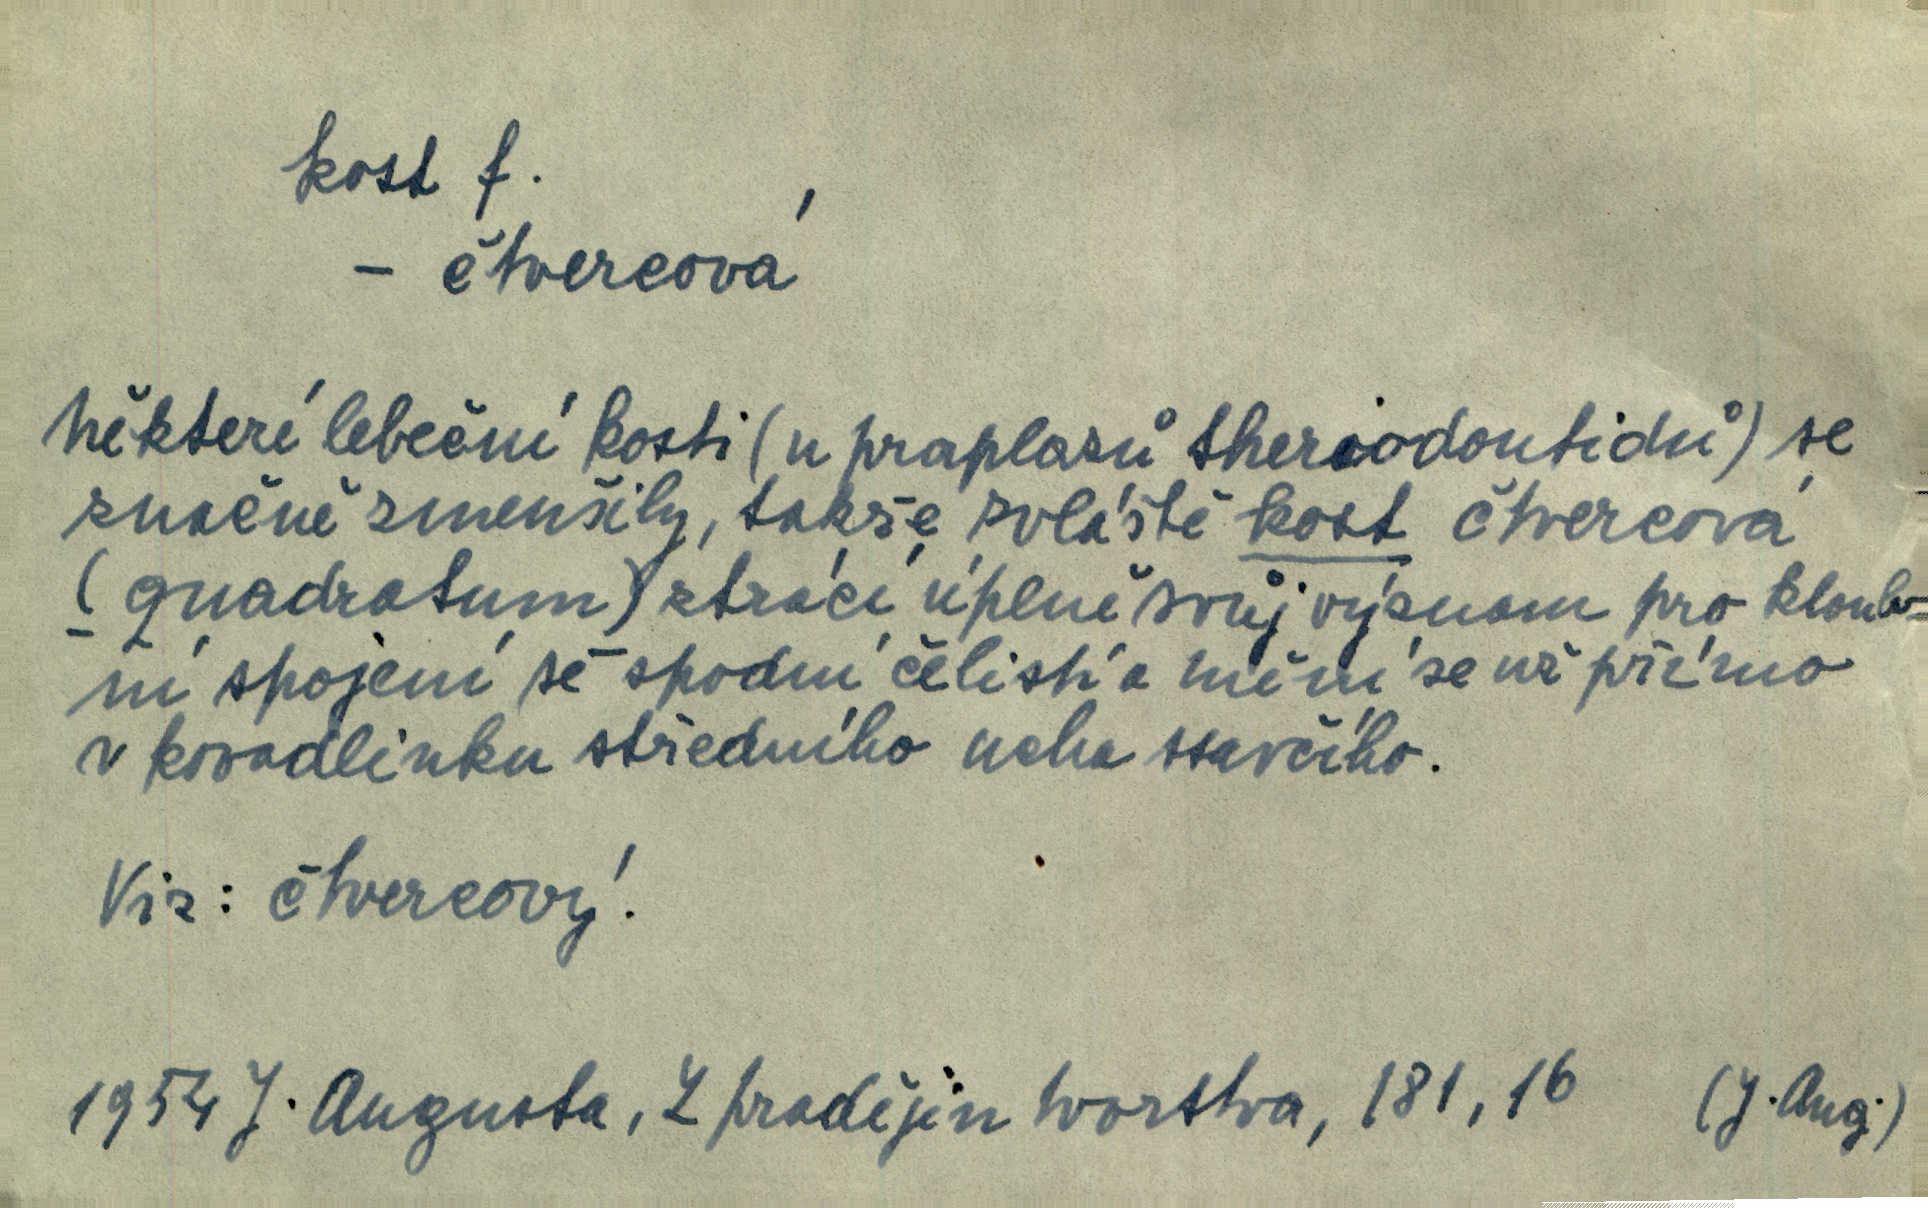 kost f.
- čtvercová
některé lebeční kosti (u praplazů theriodontidů) se
značně zmenšily, takže zvláště kost čtvercová
(quadratum) ztrácí úplně svůj význam pro kloub-
ní spojení se spodní čelistí a mění se už přímo
v kovadlinku středního ucha ssavčího.
Viz: čtvercový.
1954 J. Augusta, Z pradějin tvorstva, 181, 16 (J. Aug.)